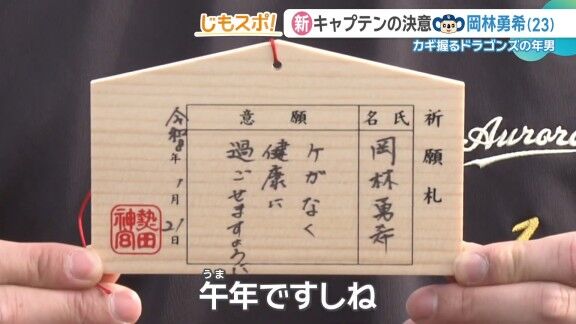 じもスポ!
新キャプテンの決意 岡林勇希(23)
カギ握るドラゴンズの年男
祈願札
氏名
岡林勇希
願意
ケガなく
健康に
過ごせますように
令和8年1月21日
熱田神宮
Aurora
うま
午年ですしね